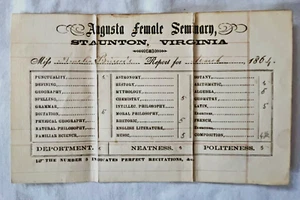 Augusta Female Seminary,
STAUNTON, VIRGINIA
Miss Report for March 1864.
PUNCTUALITY, 5 ASTRONOMY, BOTANY,
DEFINING, HISTORY, ARITHMETIC, 5
GEOGRAPHY, MYTHOLOGY, ALGEBRA,
SPELLING, CHEMISTRY, 5 GEOMETRY,
GRAMMAR, INTELLEC. PHILOSOPHY, LATIN,
DICTATION, 5 MORAL PHILOSOPHY,
PHYSICAL GEOGRAPHY, RHETORIC, 5 FRENCH,
NATURAL PHILOSOPHY, ENGLISH LITERATURE,
FAMILIAR SCIENCE, MUSIC, 5 COMPOSITION,
DEPORTMENT, NEATNESS, POLITENESS, 5
THE NUMBER 5 INDICATES PERFECT RECITATIONS, &c.